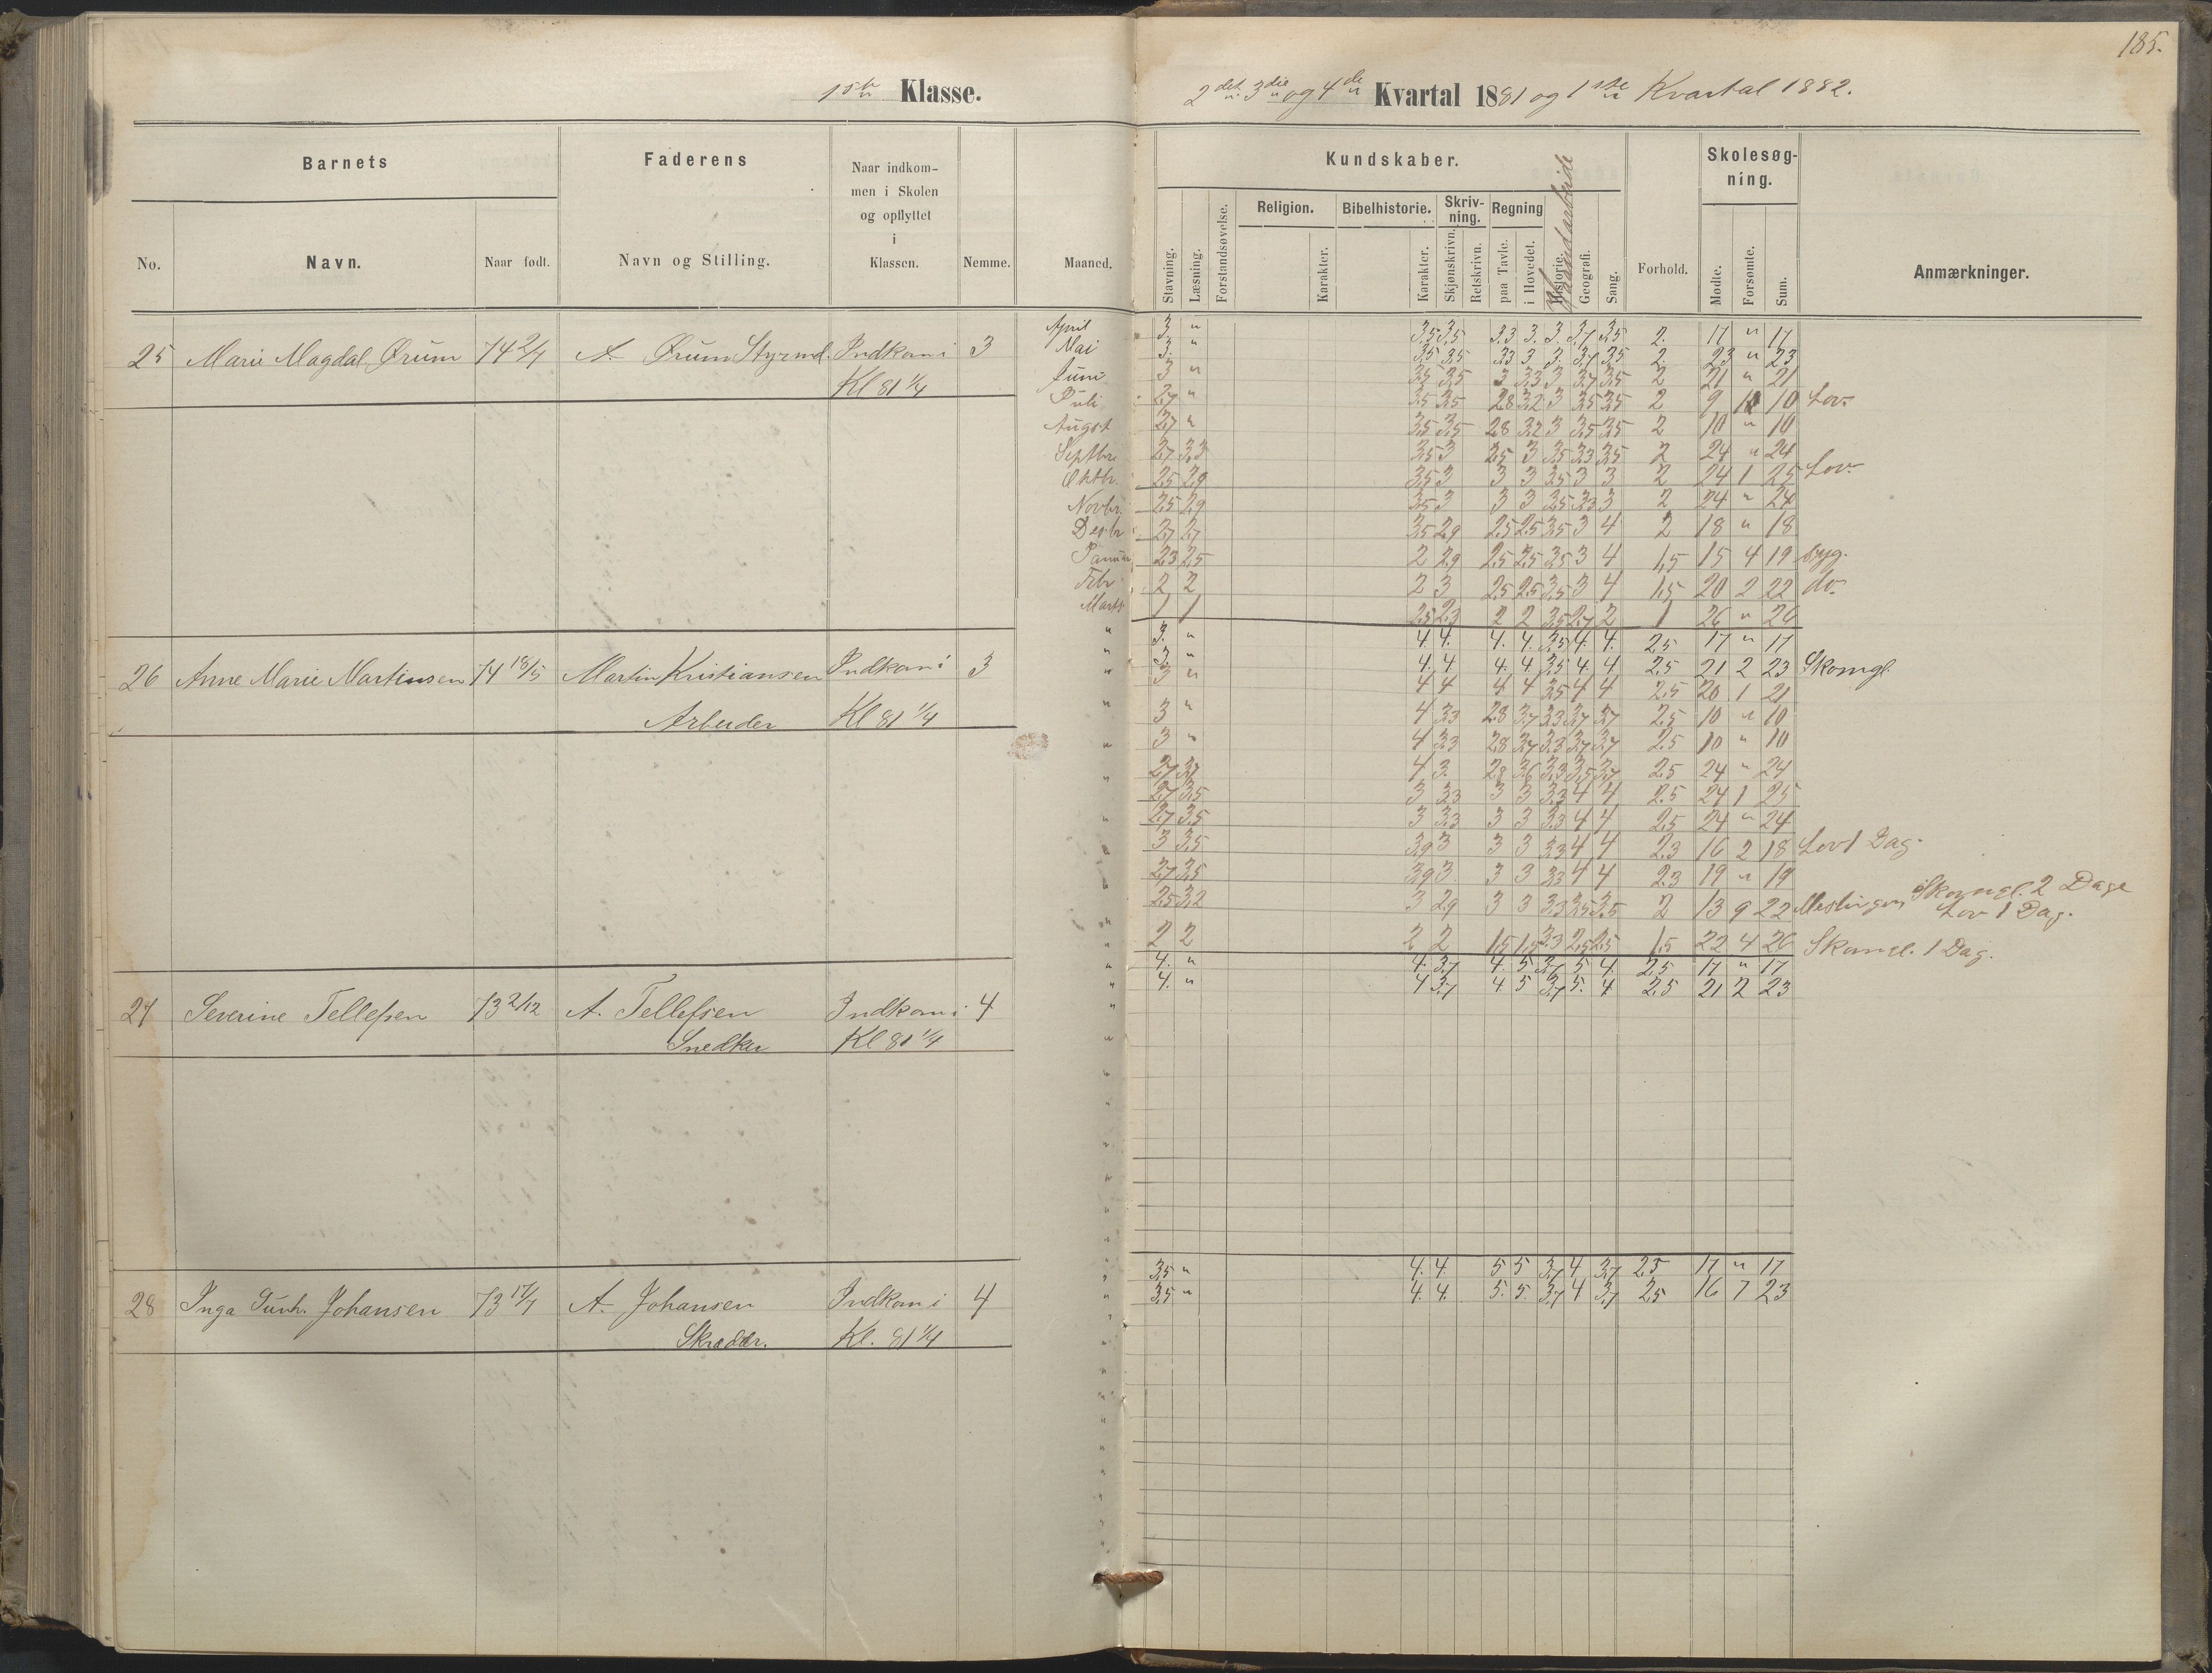 185.
1ste Klasse.
2det 3die og 4de Kvartal 1881 og 1ste Kvartal 1882.
Barnets
Faderens
Naar indkom-
men i Skolen
og opflyttet
i
Klassen.
No.
Navn.
Naar født.
Navn og Stilling.
Nemme.
Maaned.
Kundskaber.
Haandarbeide
Skolesøg-
ning.
Religion.
Bibelhistorie.
Skriv-
ning.
Regning
Stavning.
Læsning.
Forstandsøvelse.
Karakter.
Karakter.
Skjønskrivn.
Retskrivn.
paa Tavle.
i Hovedet.
Historie.
Geografi.
Sang.
Forhold.
Mødte.
Forsømte.
Sum.
Anmærkninger.
25 Marie Magdal. Ørum 74 2/7 A. Ørum Styrmd. Indkom i 3
Kl 81 1/4
April 3. " 3,5 3,5 3.3 3. 3. 3,7 3,5 2. 17 " 17
Mai 3. " 3,5 3,5 3,3 3 3. 3,7 3,5 2. 23 " 23
Juni 3 " 3,5 3,5 3 3,3 3 3,7 3,5 2 21 " 21
Juli 2,7 " 3,5 3,5 2,8 3,2 3 3,5 3,5 2 9 1 10 Lov.
August 2,7 " 3,5 3,5 2,8 3,2 3 3,5 3,5 2 10 " 10
Septbr. 2,7 3,3 3,5 3 2,5 3 3,5 3,3 3,5 2 24 " 24
Oktbr. 2,5 2,9 3,5 3 3 3 3,5 3 3 2 24 1 25 Lov.
Novbr. 2,5 2,9 3,5 3 3 3 3,5 3,3 3 2 24 " 24
Desbr 2,7 2,7 3,5 2,9 2,5 2,5 3,5 3 4 2 18 " 18
Januar 2,3 2,5 2 2,9 2,5 2,5 3,5 3 4 1,5 15 4 19 Syg.
Febr 2 2 2 3 2,5 2,5 3,5 3 4 1,5 20 2 22 do.
Marts 1 1 2,5 2,3 2 2 3,5 2,7 2 1 26 " 26
26 Anne Marie Martinsen 74 18/5 Martin Kristiansen Indkom i 3
Arbeider Kl 81 1/4
" 3. " 4. 4. 4. 4. 3,5 4. 4. 2,5 17 " 17
" 3. " 4. 4 4. 4 3,5 4. 4 2,5 21 2 23 Skomgl.
" 3 " 4 4 4 4 3,5 4 4 2,5 20 1 21
" 3 " 4 3,3 2,8 3,7 3,3 3,7 3,7 2,5 10 " 10
" 3 " 4 3,3 2,8 3,7 3,3 3,7 3,7 2,5 10 " 10
" 2,7 3,7 4 3. 2,8 3,6 3,3 3,5 3,7 2,5 24 " 24
" 2,7 3,5 3 3,3 3 3 3,3 4 4 2.5 24 1 25
" 2,7 3,5 3 3,3 3 3 3,3 4 4 2,5 24 " 24
" 3 3,5 3,9 3 3 3 3,3 4 4 2,3 16 2 18 Lov 1 Dag.
" 2,7 3,5 3,9 3 3 3 3,3 4 4 2.3 19 " 19
" 2,5 3,2 3 2,9 3 3 3,3 3,5 3,5 2 13 9 22 Meslinger, Skomgl. 2 Dage
Lov 1 Dag.
" 2 2 2 2 1,5 1,5 3,3 2,5 2,5 1,5 22 4 26 Skomgl. 1 Dag.
27 Severine Tellefsen 73 2/12 A. Tellefsen Indkom i 4
Snedker Kl 81 1/4
" 4. " 4. 3,7 4. 5 3,7 5 4. 2,5 17 " 17
" 4. " 4 3,7 4 5 3,7 5. 4 2,5 21 2 23
28 Inga Gunh. Johansen 73 17/7 A. Johansen Indkom i 4
Skrædder. Kl. 81 1/4
" 3,5 " 4. 4. 5 5 3,7 4 3,7 2,5 17 " 17
" 3,5 " 4. 4. 5. 5. 3,7 4 3,7 2,5 16 7 23